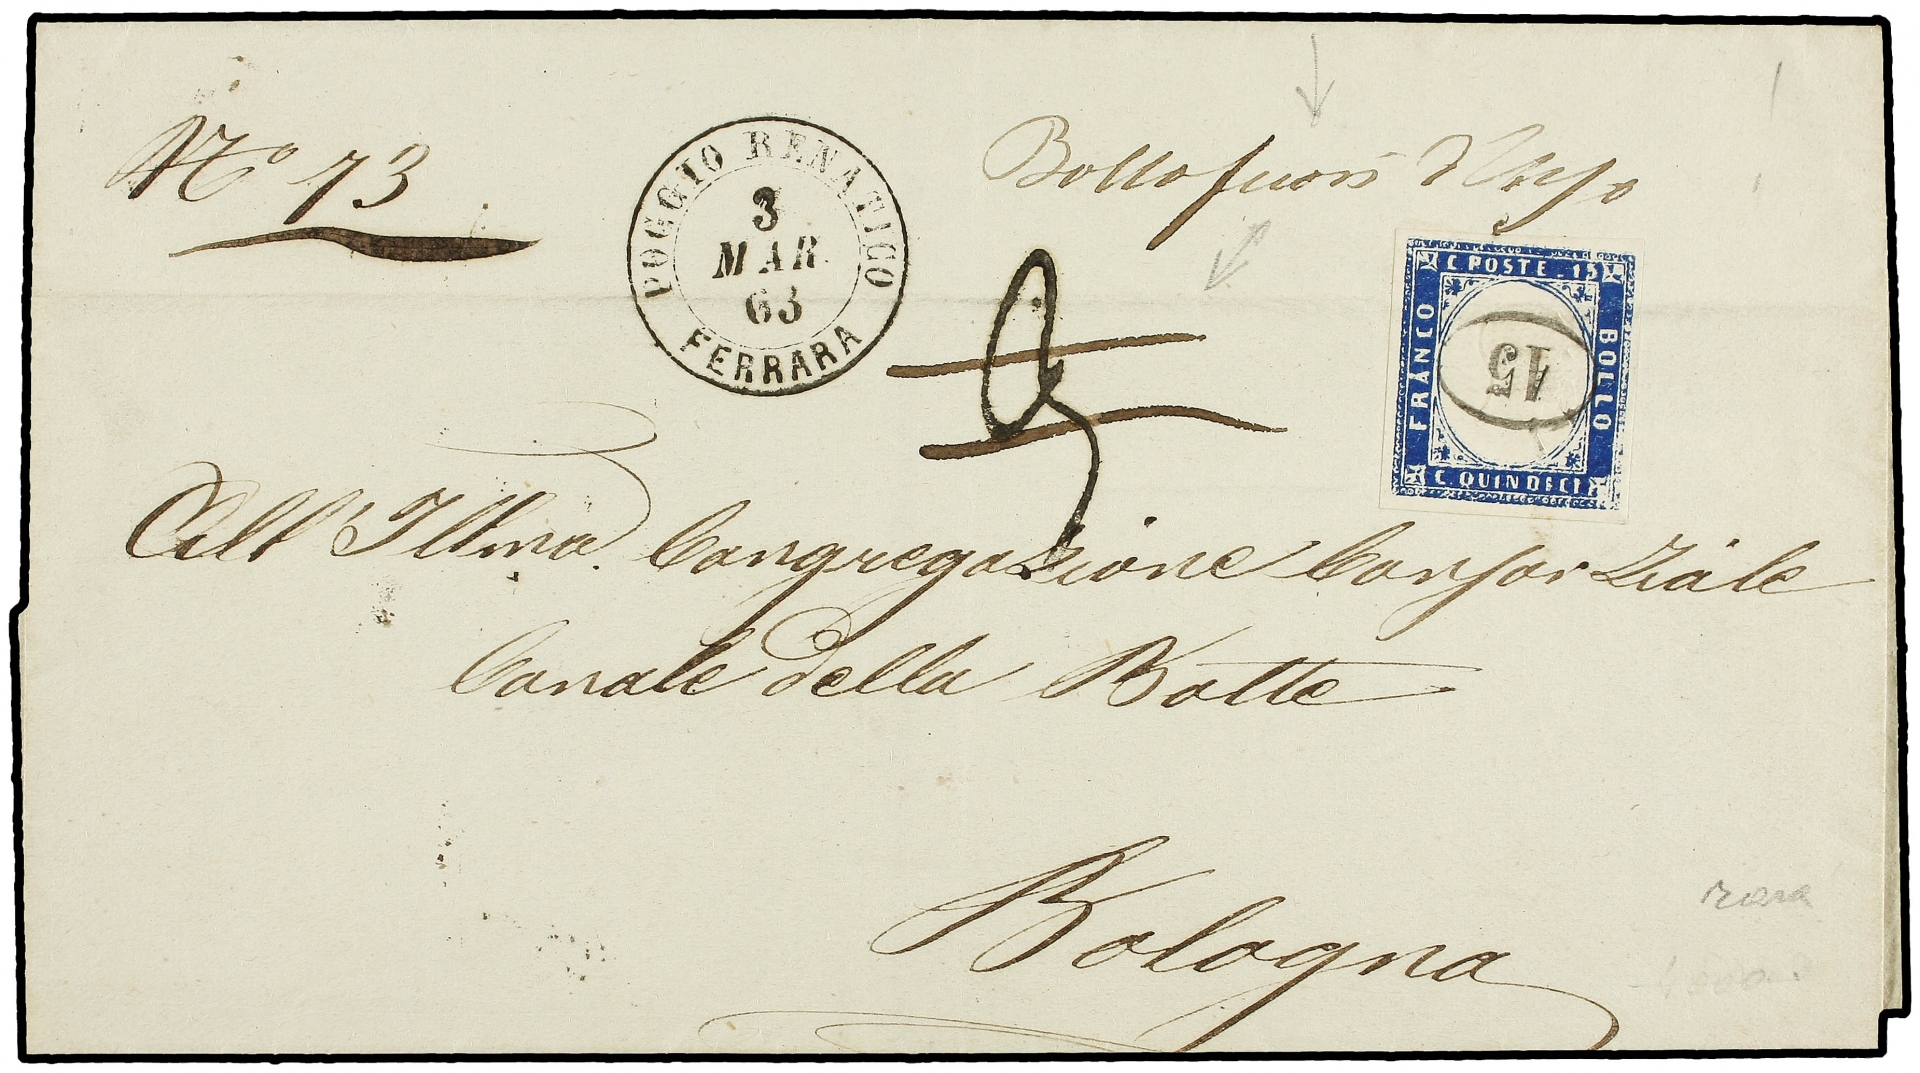 No 73
POGGIO RENATICO
3
MAR
63
FERRARA
Bollo fuori d'Uso
C. POSTE. 15
FRANCO
BOLLO
C. QUINDICI
15
All' Illma. Congregazione Consorziale
Canale della Botte
Bologna
rara